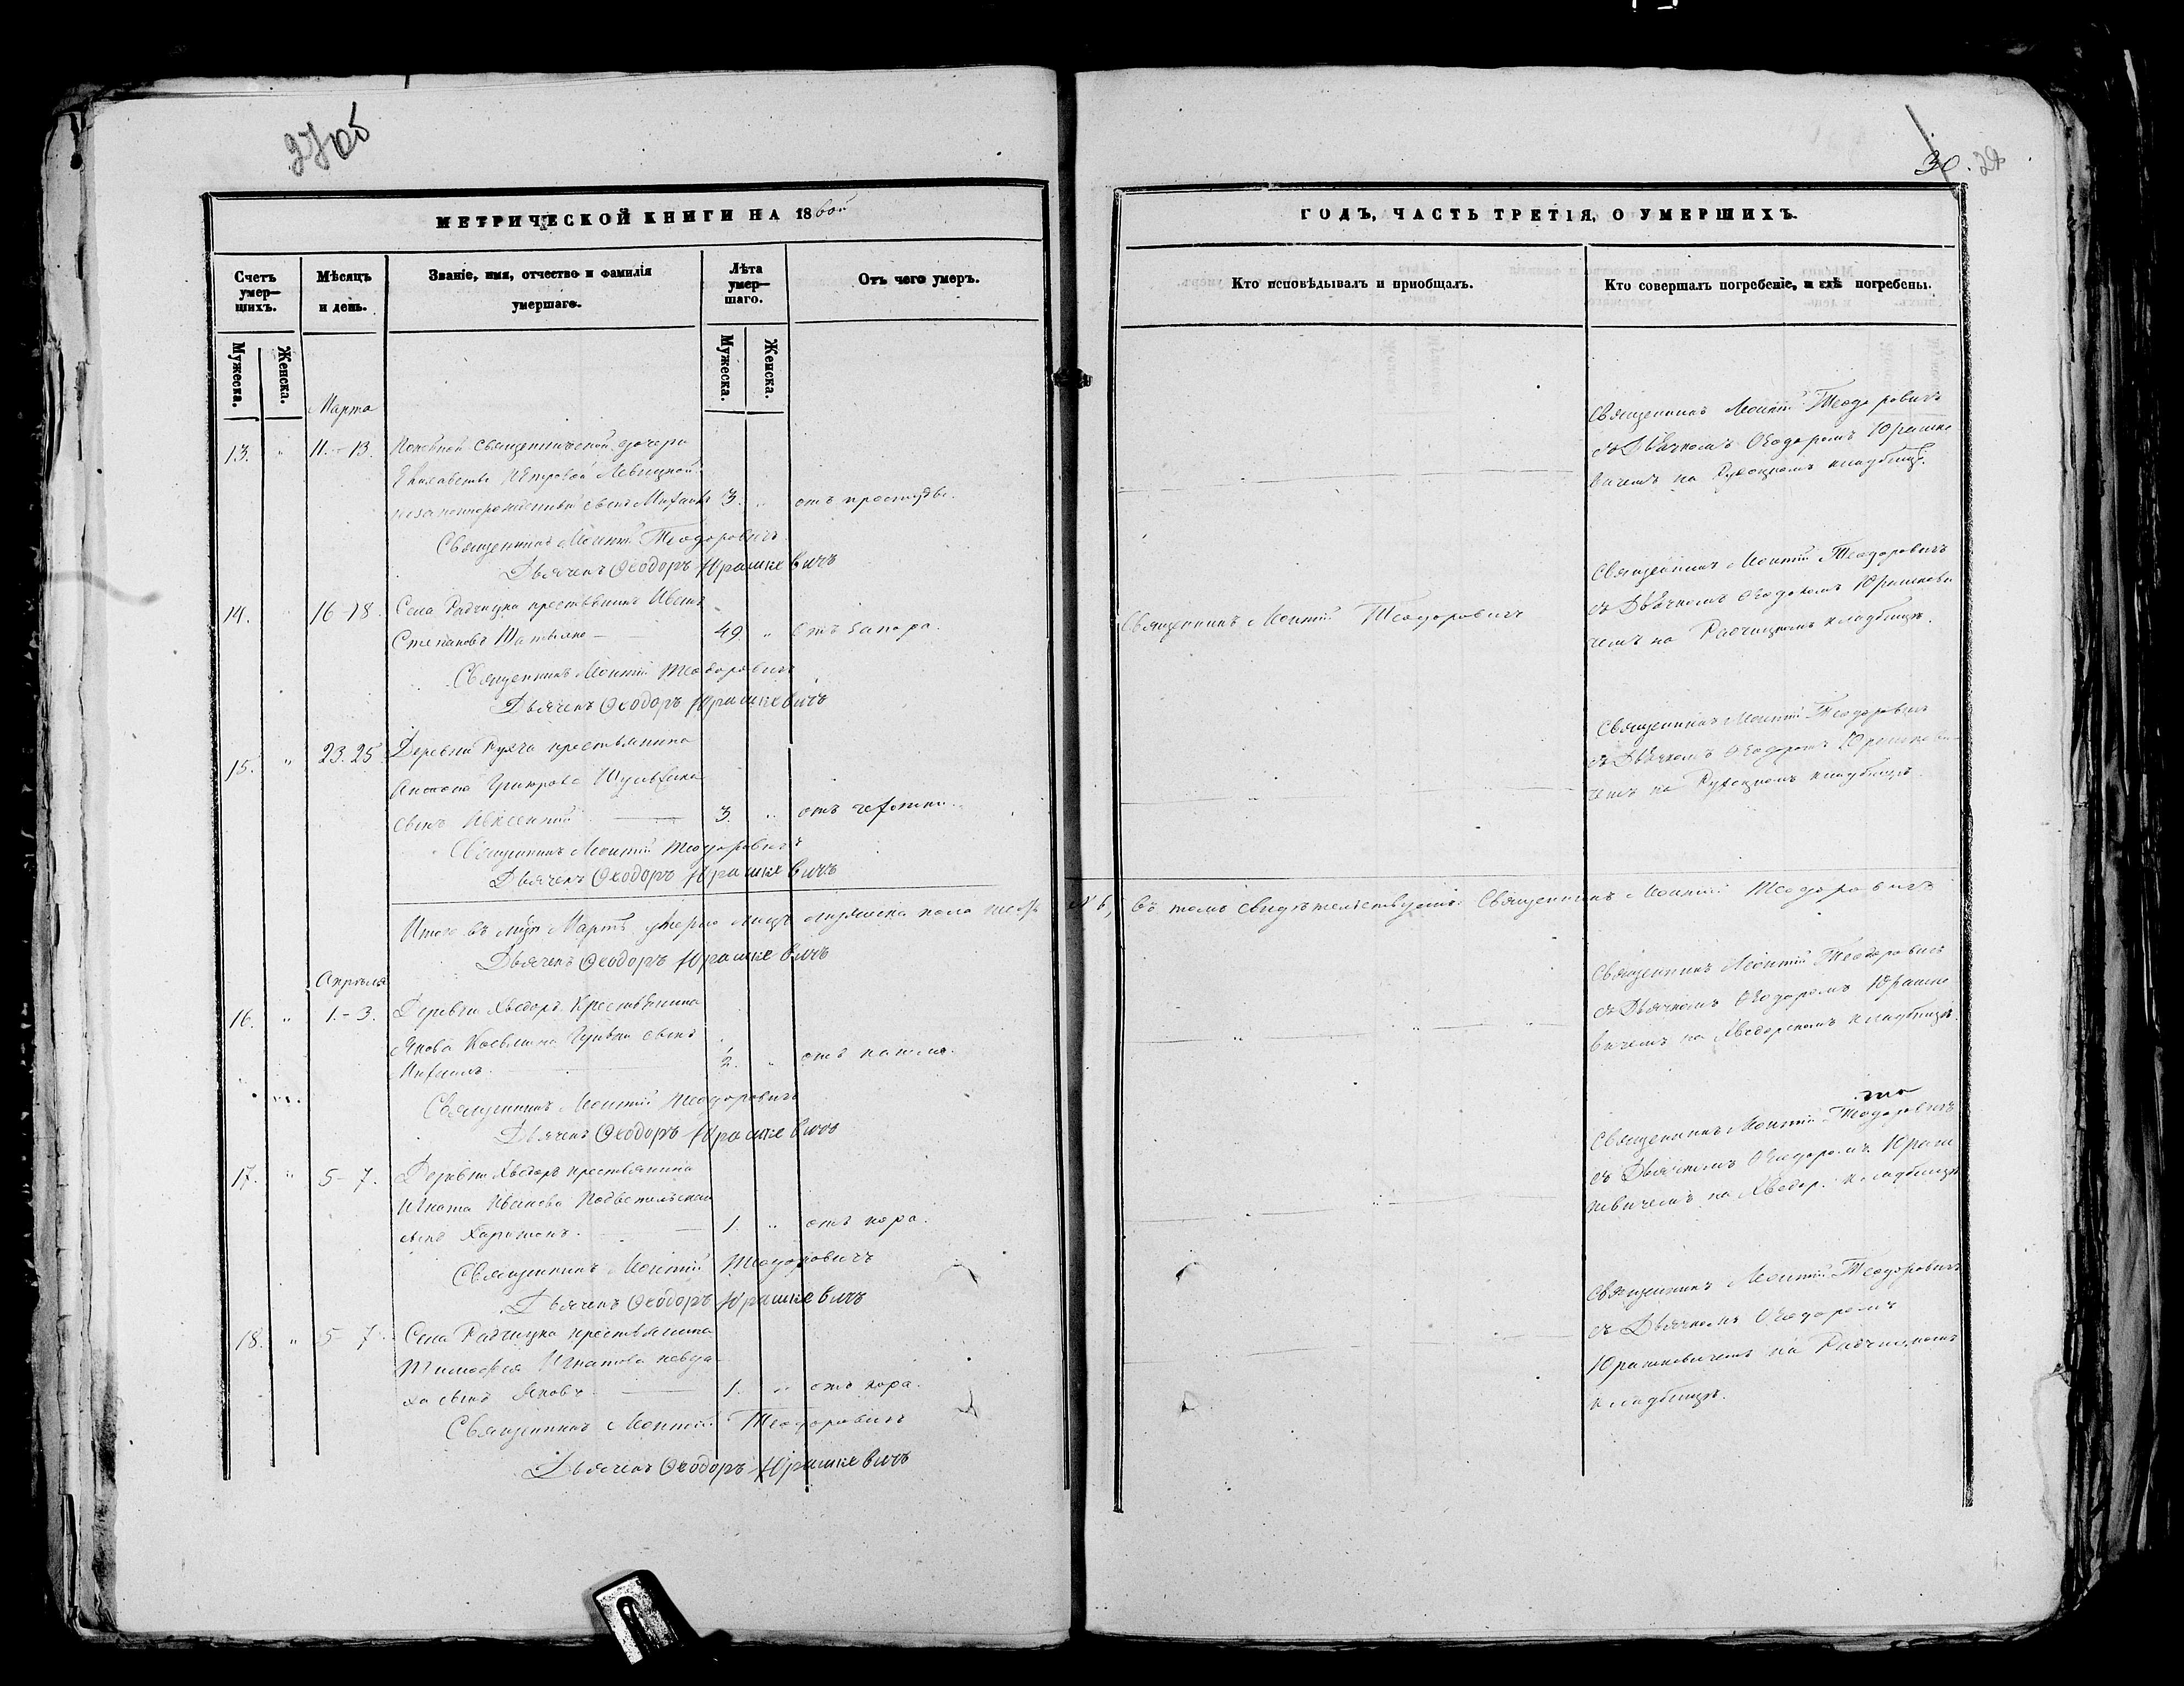 27об
МЕТРИЧЕСКОЙ КНИГИ НА 1860й
Счетъ умер—шихъ.
Мужеска.
Женска.
Мѣсяцъ и день.
Званіе, имя, отчество и фамилія умершаго.
Лѣта умер—шаго.
Мужеска.
Женска.
Отъ чего умеръ.
Марта
13. " 11.-13.
дочери
Левицкой
сынъ 3. " отъ простуды.
Священникъ Леонтій Теодоровичъ
Дьячекъ Ѳеодоръ Юрашкевичъ
14. " 16-18. Села Радчицка крестьянинъ
Степановъ 49 " Отъ запора.
Священникъ Леонтій Теодоровичъ
Дьячекъ Ѳеодоръ Юрашкевичъ
15. " 23.25 Деревни крестьянина
Григорова
сынъ 3. " отъ чехотки.
Священникъ Леонтій Теодоровичъ
Дьячекъ Ѳеодоръ Юрашкевичъ
Итого въ Мартѣ умерло мужеска пола
Дьячекъ Ѳеодоръ Юрашкевичъ
Апрѣля
16. " 1.-3. Деревни Хведоръ Крестьянина
Якова сынъ
2. " отъ кашля.
Священникъ Леонтій Теодоровичъ
Дьячекъ Ѳеодоръ Юрашкевичъ
17. " 5-7. Деревни Хведоръ крестьянина
Игната Иванова
сынъ Харитонъ. 1. " отъ кора.
Священникъ Леонтій Теодоровичъ
Дьячекъ Ѳеодоръ Юрашкевичъ
18. " 5-7. Села Радчицка крестьянина
Тимоѳея Игнатова
сынъ Яковъ 1. " отъ кора.
Священникъ Леонтій Теодоровичъ
Дьячекъ Ѳеодоръ Юрашкевичъ
30. 28
ГОДЪ, ЧАСТЬ ТРЕТІЯ, О УМЕРШИХЪ.
Кто исповѣдывалъ и пріобщалъ.
Кто совершалъ погребеніе, и гдѣ погребены.
Священникъ Леонтій Теодоровичъ
съ Дьячкомъ Ѳеодоромъ Юрашке
вичемъ на кладбищѣ.
Священникъ Леонтій Теодоровичъ
Священникъ Леонтій Теодоровичъ
съ Дьячкомъ Ѳеодоромъ Юрашкеви
чемъ на Радчицкомъ кладбищѣ.
Священникъ Леонтій Теодоровичъ
съ Дьячкомъ Ѳеодоромъ Юрашкеви
чемъ на кладбищѣ.
въ томъ свидѣтельствуемъ: Священникъ Леонтій Теодоровичъ
Священникъ Леонтій Теодоровичъ
съ Дьячкомъ Ѳеодоромъ Юрашке
вичемъ на Хведорскомъ кладбищѣ.
Священникъ Леонтій Теодоровичъ
съ Дьячкомъ Ѳеодоромъ Юраш
кевичемъ на Хведор. кладбищѣ
Священникъ Леонтій Теодоровичъ
съ Дьячкомъ Ѳеодоромъ
Юрашкевичемъ на Радчицкомъ
кладбищѣ.